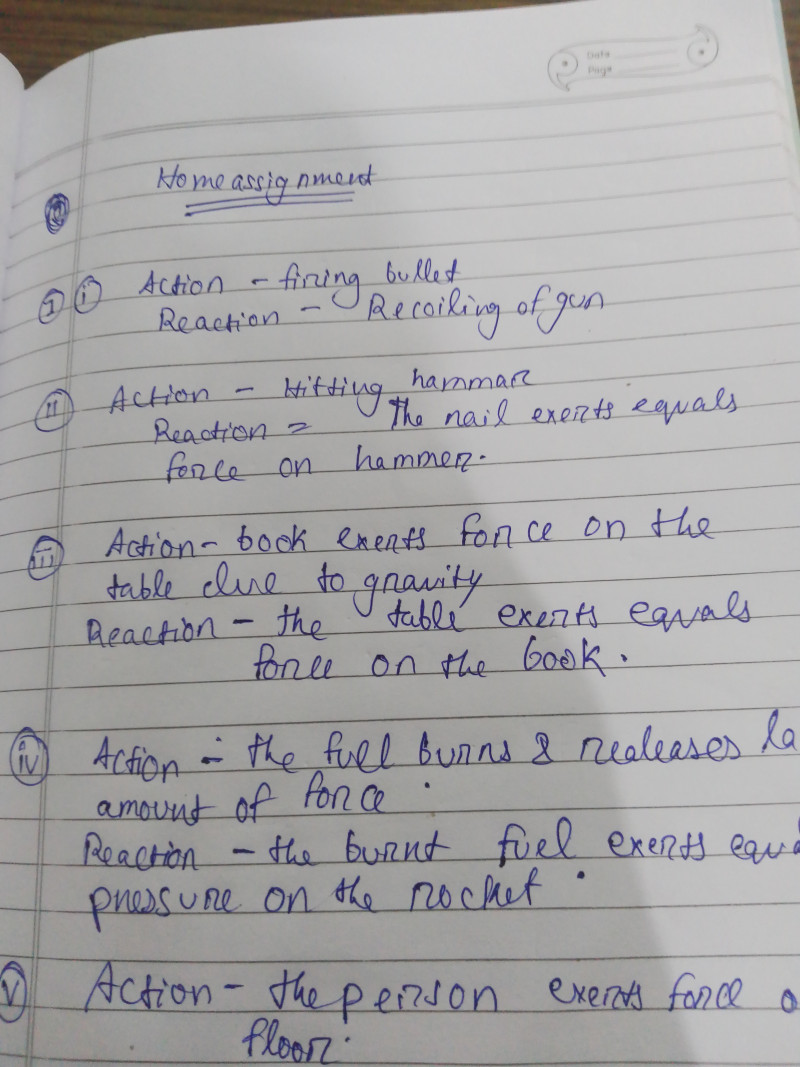 Date
Page
Home assignment
1 i Action - firing bullet
Reaction - Recoiling of gun
ii Action - Hitting hammar
Reaction = The nail exerts equals
force on hammer.
iii Action - book exerts force on the
table due to gravity
Reaction - the table exerts equals
force on the book.
iv Action - the fuel burns & realeases la
amount of force.
Reaction - the burnt fuel exerts equa
pressure on the rocket.
v Action - the person exerts force o
floor.